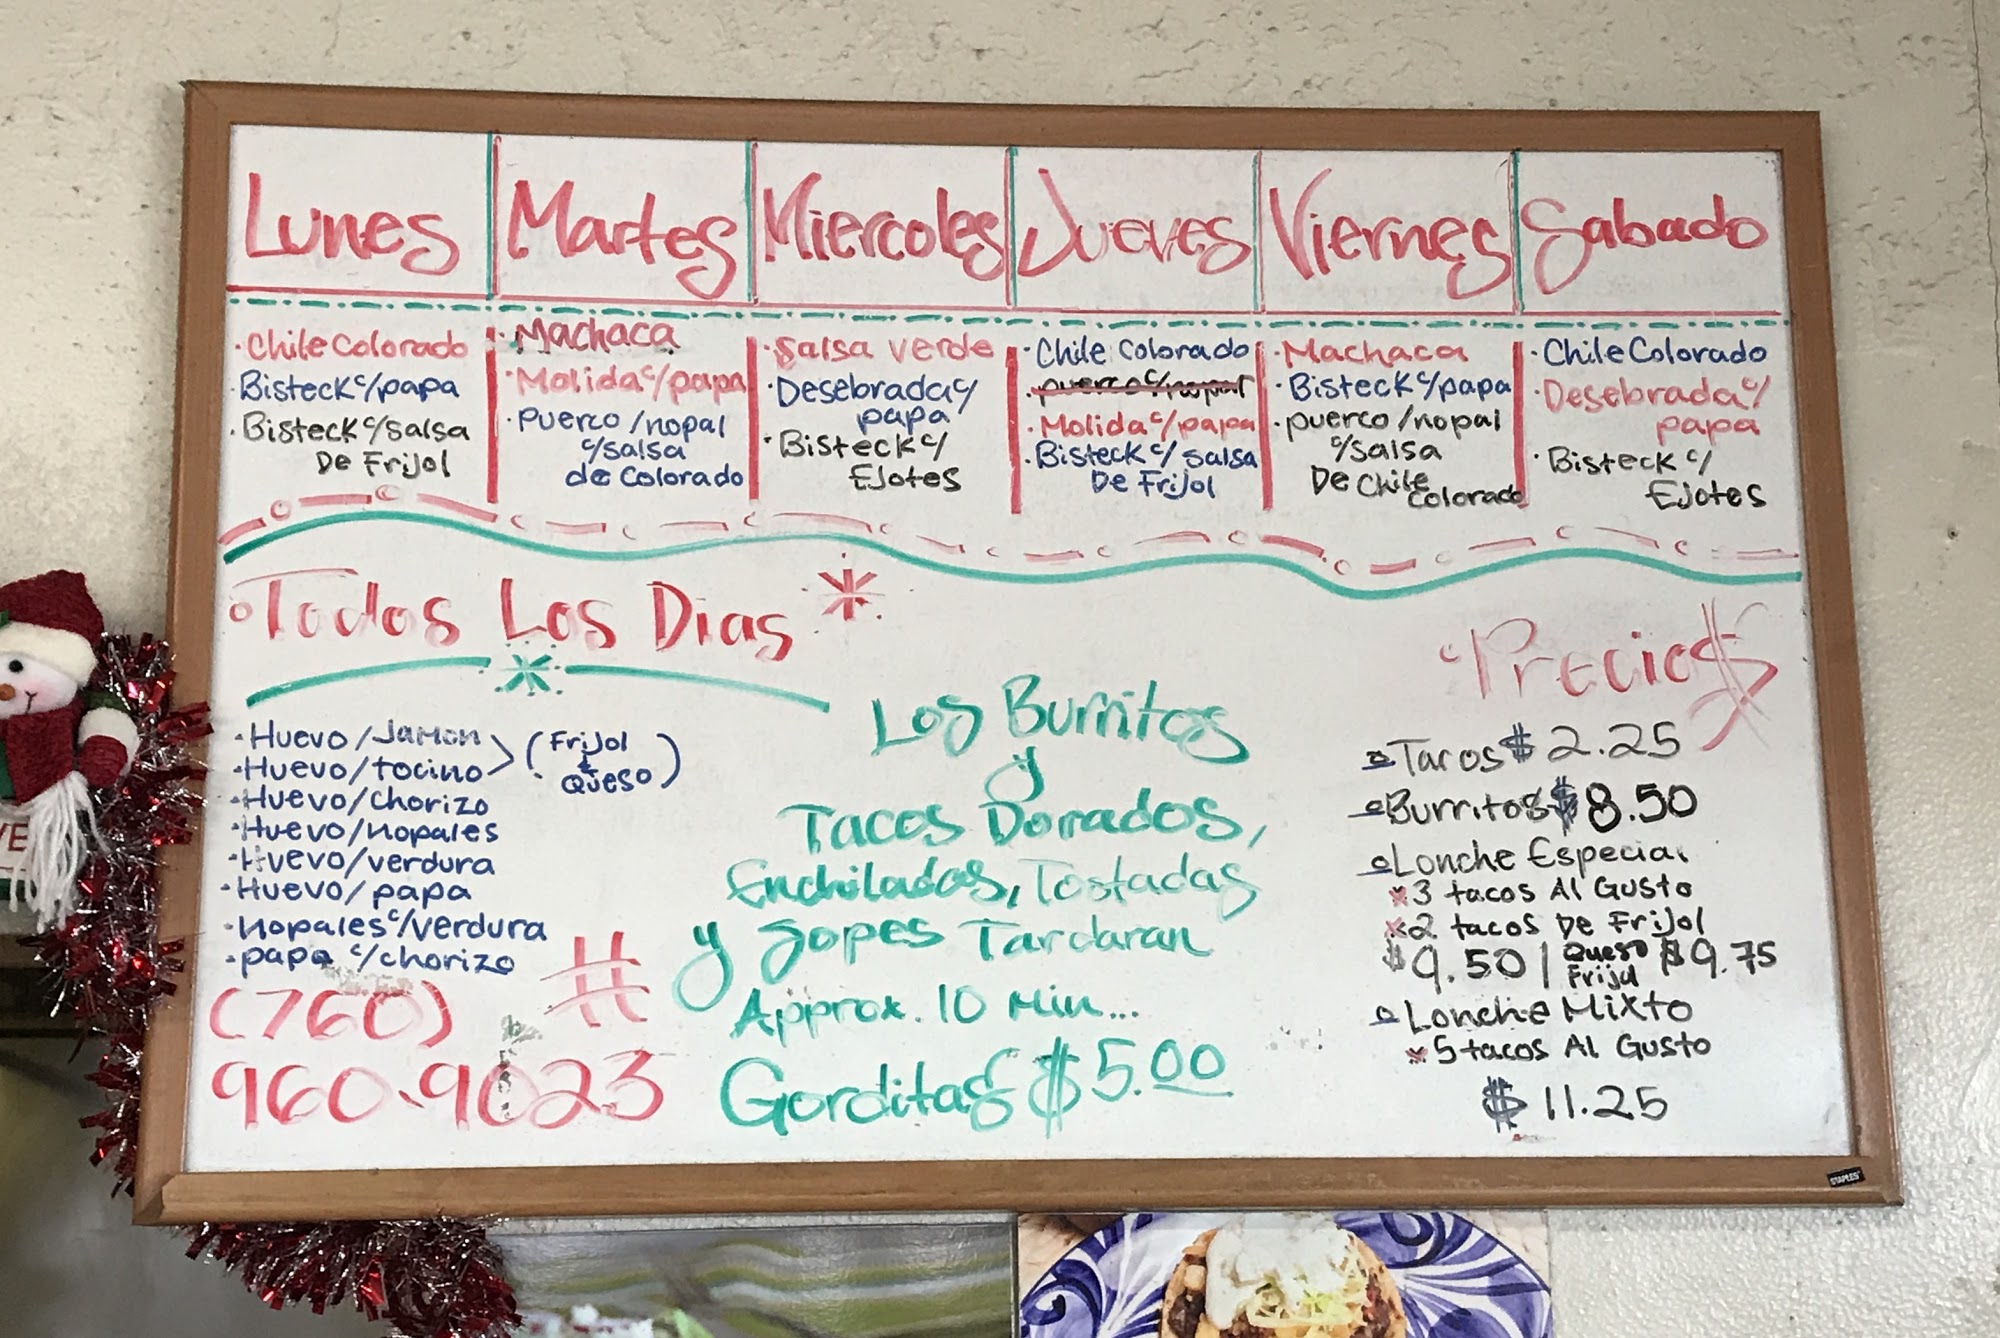 Lunes
Martes
Miercoles
Jueves
Viernes
Sabado
·Chile Colorado
·Bisteck c/papa
·Bisteck c/salsa
De Frijol
·Machaca
·Molida c/papa
·Puerco/nopal
c/salsa
de Colorado
·Salsa verde
·Desebrada c/
papa
·Bisteck c/
Ejotes
·Chile Colorado
·puerco c/nopal
·Molida c/papa
·Bisteck c/salsa
De Frijol
·Machaca
·Bisteck c/papa
·puerco/nopal
c/salsa
De Chile
Colorado
·Chile Colorado
·Desebrada c/
papa
·Bisteck c/
Ejotes
Todos Los Dias *
·Huevo/Jamon
·Huevo/tocino
(Frijol
&
Queso)
·Huevo/chorizo
·Huevo/nopales
·Huevo/verdura
·Huevo/papa
·nopales c/verdura
·papa c/chorizo
#
(760)
960-9023
Los Burritos
y
Tacos Dorados,
Enchiladas, Tostadas
y Sopes Tardaran
Approx. 10 Min...
Gorditas $5.00
Precios
Tacos $2.25
Burritos $8.50
Lonche Especial
*3 tacos Al Gusto
*2 tacos De Frijol
$9.50 | Queso Frijol $9.75
Lonche Mixto
*5 tacos Al Gusto
$11.25
STAPLES